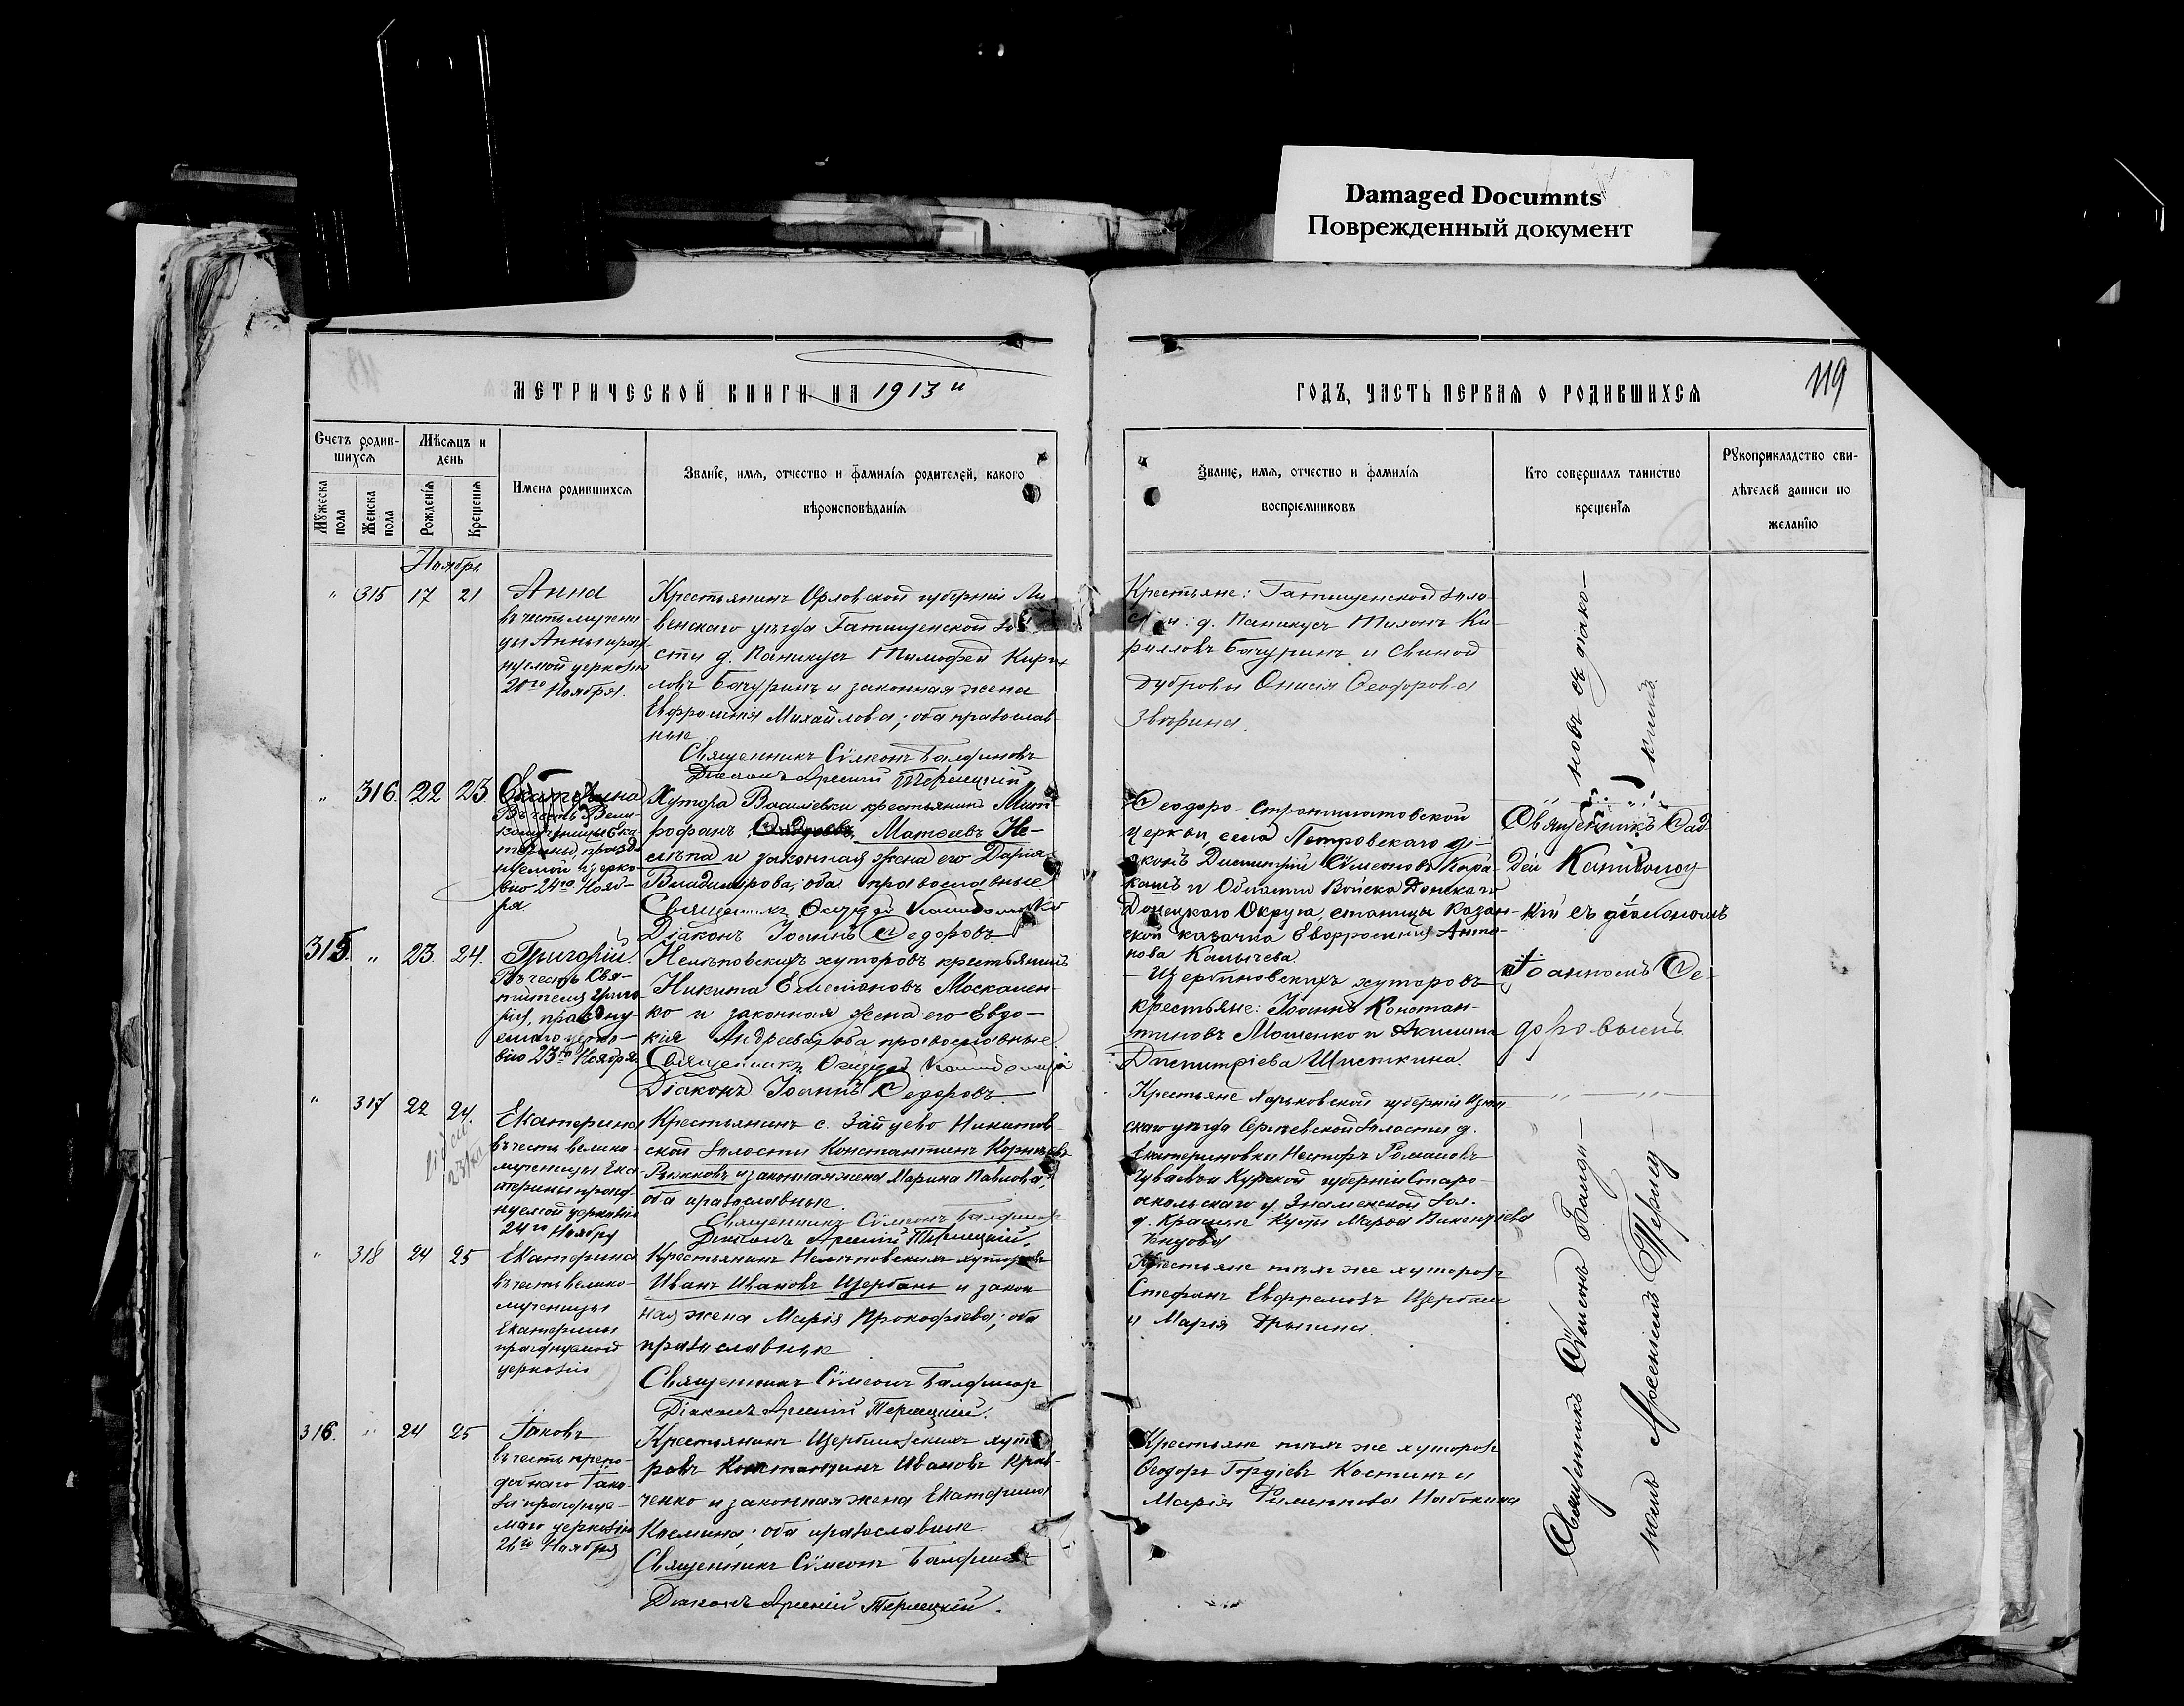 Damaged Documnts
Поврежденный документ
МЕТРИЧЕСКОЙ КНИГИ НА 1913 й
ГОДЪ, ЧАСТЬ ПЕРВАЯ О РОДИВШИХСЯ
119
Счетъ родив-
шихся
Мѣсяцъ и
день
Мужеска пола
Женска пола
Рожденія
Крещенія
Имена родившихся
Званіе, имя, отчество и фамилія родителей, какого
вѣроисповѣданія
Званіе, имя, отчество и фамилія
воспріемниковъ
Кто совершалъ таинство
крещенія
Рукоприкладство сви-
дѣтелей записи по
желанію
Ноябрь
" 315 17 21
Анна
въ честь мучени-
цы Анны празд-
нуемой церковію
20го Ноября.
Крестьянинъ Орловской губерніи Ли
венскаго уѣзда Гатищенской во
сти д. Паникуся Тимофей Кири
ловъ Бачуринъ и законная жена
Евфросинія Михайлова; оба православ-
ные
Священникъ Сѵмеонъ Балдиновъ
Діаконъ Арсеній Терлецкій
Крестьяне: Гатищенской воло-
сти: д. Паникуся Тихонъ Ки-
рилловъ Бачуринъ и Свиной
Дубровы Онисія Ѳеодорова
Звѣрина.
" 316. 22 23.
Екатерина
Въ честь Вели-
комученицы Ека-
терины, празд-
нуемой церко-
вію 24го Нояб-
ря.
Хутора Василевки крестьянинъ Мит-
рофанъ Матѳеевъ Не-
лѣпа и законная жена его Дарія
Владимірова, оба православные.
Священникъ
Діаконъ Іоаннъ Ѳедоровъ.
Ѳеодоро-Стратилатовской
церкви, села Петровскаго ді-
аконъ Димитрій Сѵмеоновъ Кара-
кашъ и Области Войска Донскаго
Донецкаго Округа, станицы Казан-
ской казачка Евфросинія Анто-
нова Калычева
Священникъ Ѳад-
дей
кій съ діакономъ
Іоанномъ Ѳе-
доровымъ
315. " 23. 24.
Григорій.
Въ честь Свя-
тителя Григо-
рія, праздну-
емаго церко-
вію 23го Ноября.
Нелѣповскихъ хуторовъ крестьянинъ
Никита Емеліановъ Москален-
ко и законная жена его Евдо-
кія Андреева, оба православные.
Священникъ
Діаконъ Іоаннъ Ѳедоровъ.
Щербиновскихъ хуторовъ
крестьяне: Іоаннъ Констан-
тиновъ Мошенко и Акилина
Димитріева Шисткина.
" 317 22 24.
Екатерина
въ честь велико-
мученицы Ека-
терины празд-
нуемой церковію
24го Ноября
Крестьянинъ с. Зайцево Никитов-
ской волости Константинъ Корнѣевъ
Рыжковъ и законная жена Марина Павлова,
оба православные.
Священникъ Сѵмеонъ Балдиновъ
Діаконъ Арсеній Терлецкій.
Крестьяне Харьковской губерніи Изюм
скаго уѣзда Сергѣевской волости д.
Екатериновки Несторъ Романовъ
Чуваевъ и Курской губерніи Старо-
оскольскаго у. Знаменской вол.
д. Красные Кусты Марѳа Викентіева
" 318 24 25
Екатерина
въ честь велико-
мученицы
Екатерины
празднуемой
церковію
Крестьянинъ Нелѣповскихъ хуторовъ
Иванъ Ивановъ Щербань и закон
ная жена Марія Прокофіева; оба
православные
Священникъ Сѵмеонъ Балдиновъ
Діаконъ Арсеній Терлецкій.
Крестьяне тѣхъ же хуторовъ
Стефанъ Евфремовъ Щербань
и Марія Дрыпина.
316. " 24 25
Іаковъ
въ честь препо-
добнаго Іако-
ва празднуе-
маго церковію
26го Ноября
Крестьянинъ Щербиновскихъ хуто
ровъ Константинъ Ивановъ Крав-
ченко и законная жена Екатерина
Козмина; оба православные.
Священникъ Сѵмеонъ Балдиновъ
Діаконъ Арсеній Терлецкій.
Крестьяне тѣхъ же хуторовъ
Ѳеодоръ Гордіевъ Костинъ и
Марія Филиппова Набокина
Священникъ Сѵмеонъ Балди-
новъ съ діако-
номъ Арсеніемъ Терлец-
кимъ.